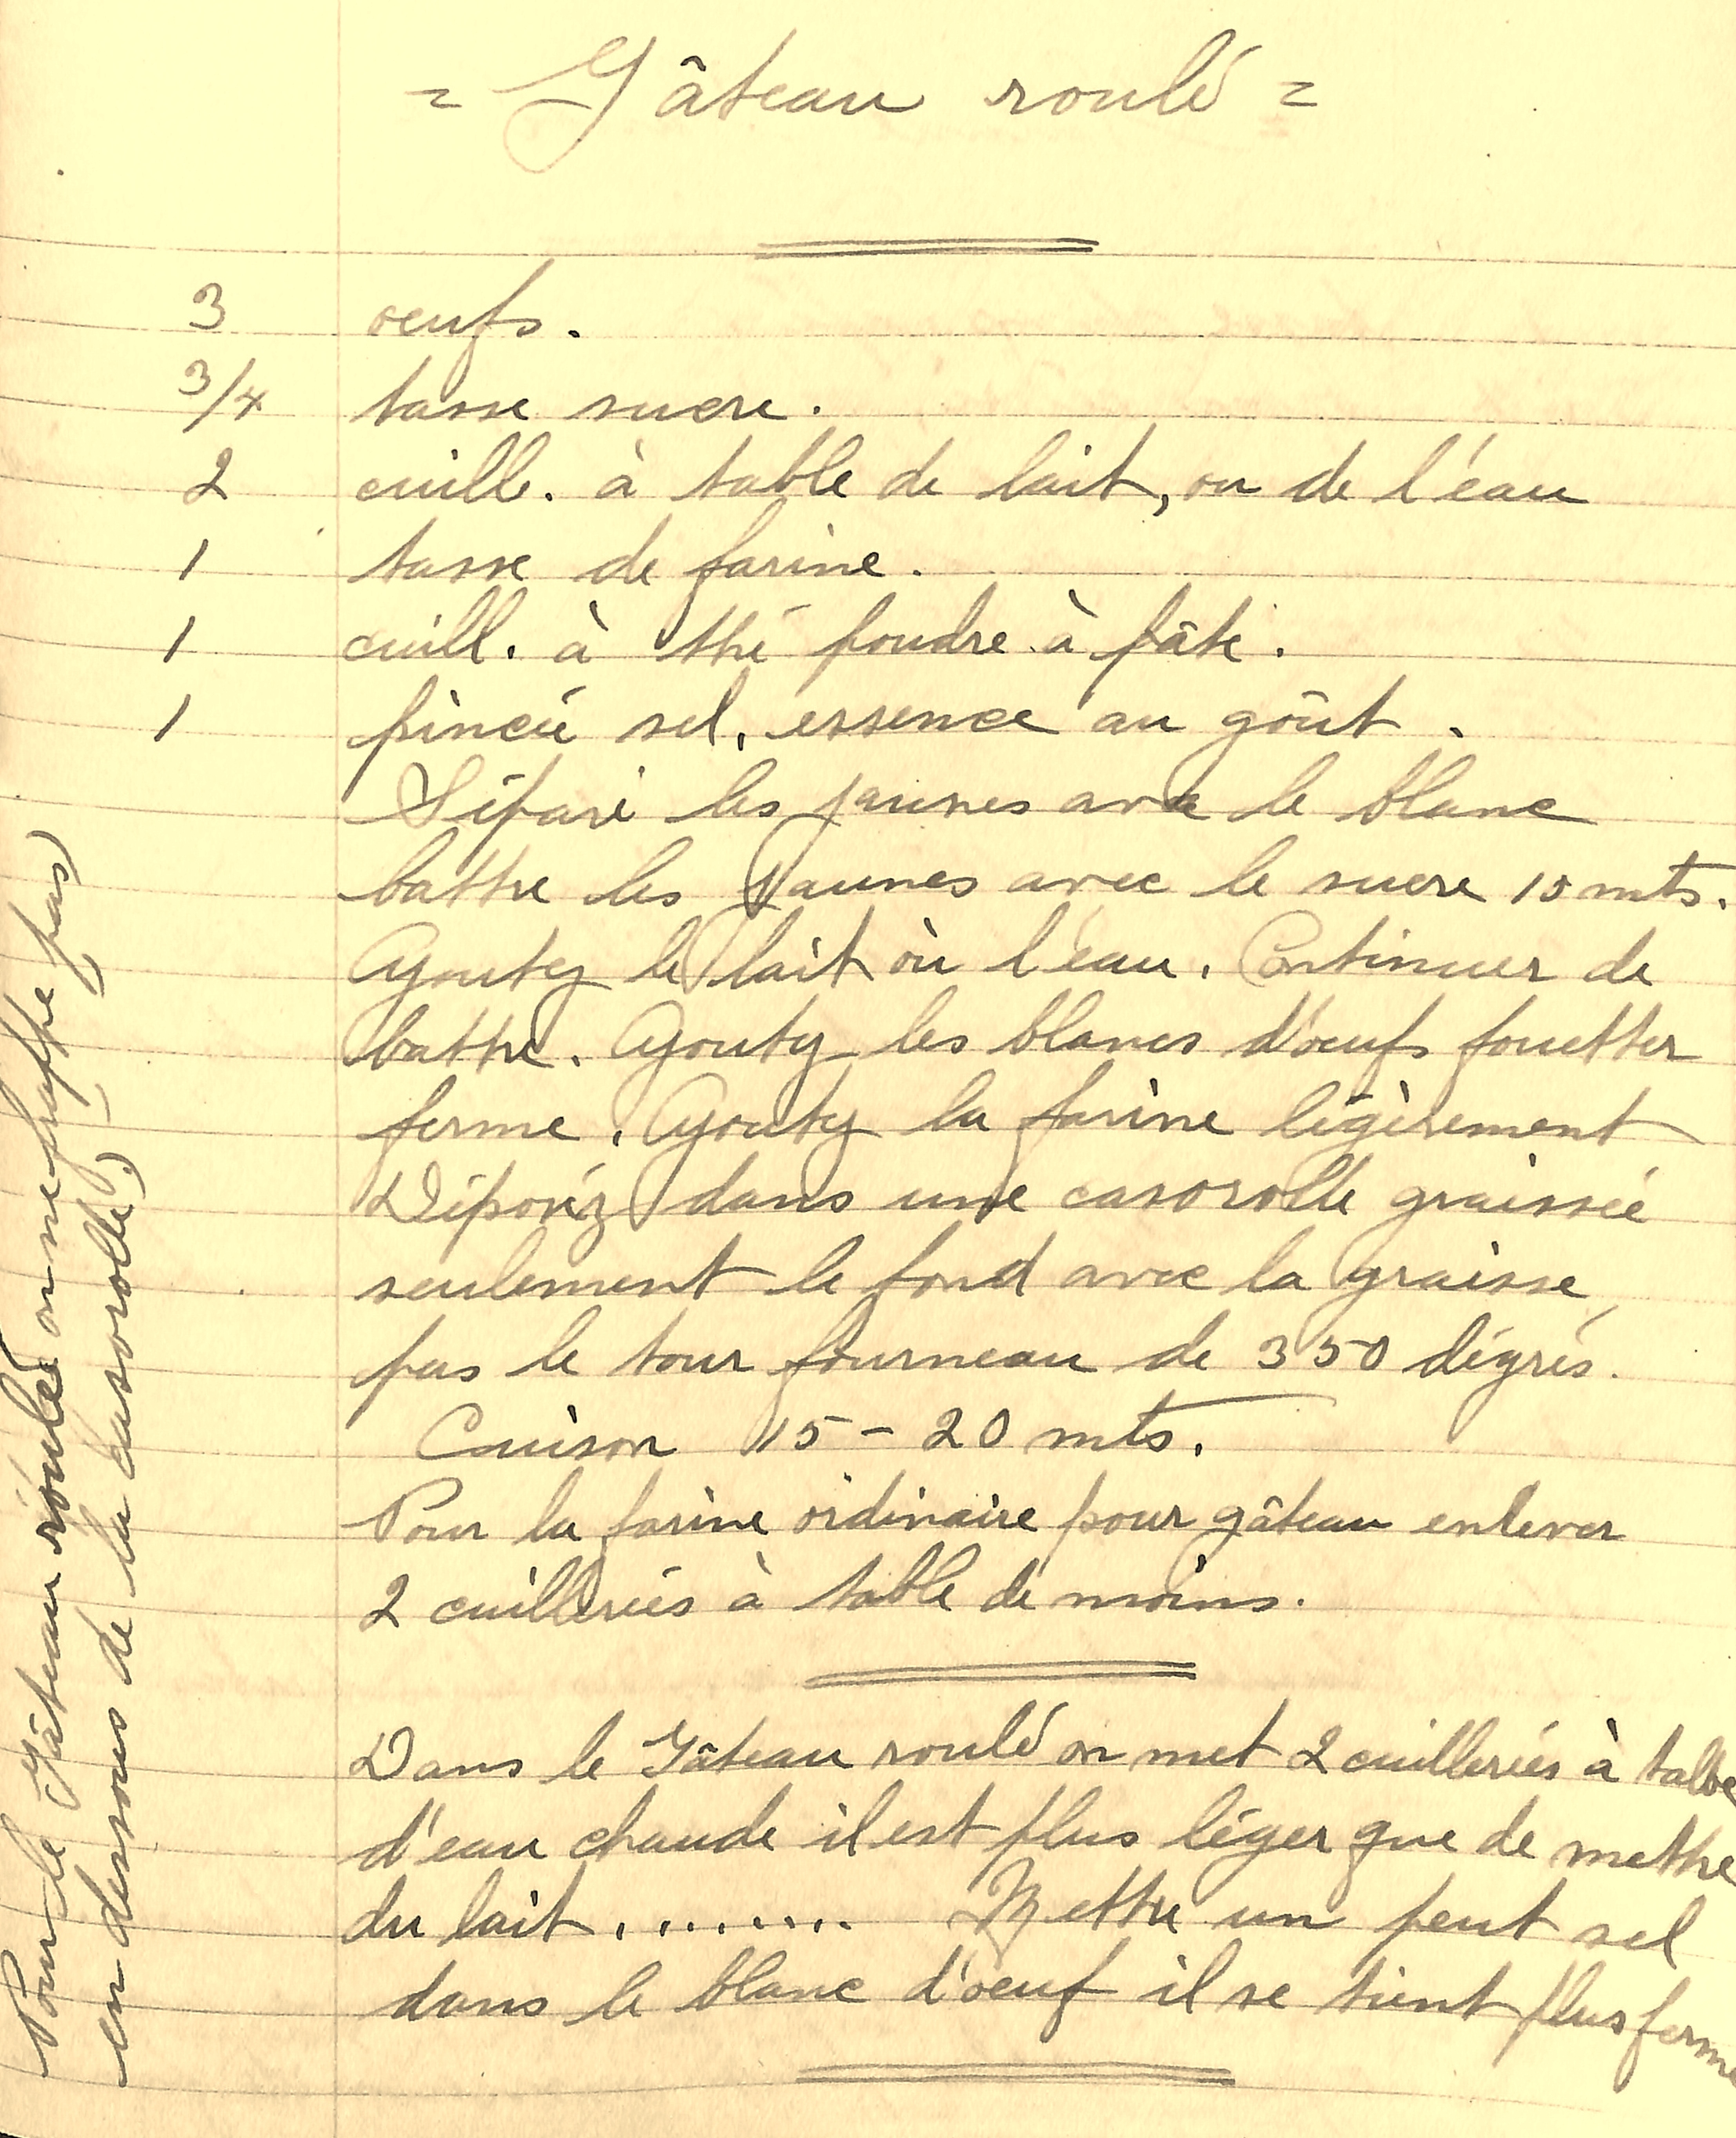 = Gâteau roulé =
3 oeufs.
3/4 tasse sucre.
2 cuill. à table de lait, ou de l'éau
1 tasse de farine.
1 cuill. à thé poudre à pâte.
1 pincée sel, essence au goût.
Séparé les jaunes avec le blanc
battre les jaunes avec le sucre 10 mts.
Ajoutez le lait où l'éau. Continuer de
battre. Ajoutez les blancs d'oeufs fouetter
ferme. Ajoutez la farine légèrement
Déposéz dans une casorolle graissée
seulement le fond avec la graisse,
pas le tour fourneau de 350 dégrés.
Cuison 15 - 20 mts.
Pour la farine ordinaire pour gâteau enlever
2 cuillerées à table de moins.
Dans le Gâteau roulé on met 2 cuillerées à talbe
d'eau chaude il est plus léger que de mettre
du lait ........ Mettre un peut sel
dans le blanc d'oeuf il se tient plus ferme
Pour le Gâteau roulés on ne frappe pas)
en dessous de la casorolle)